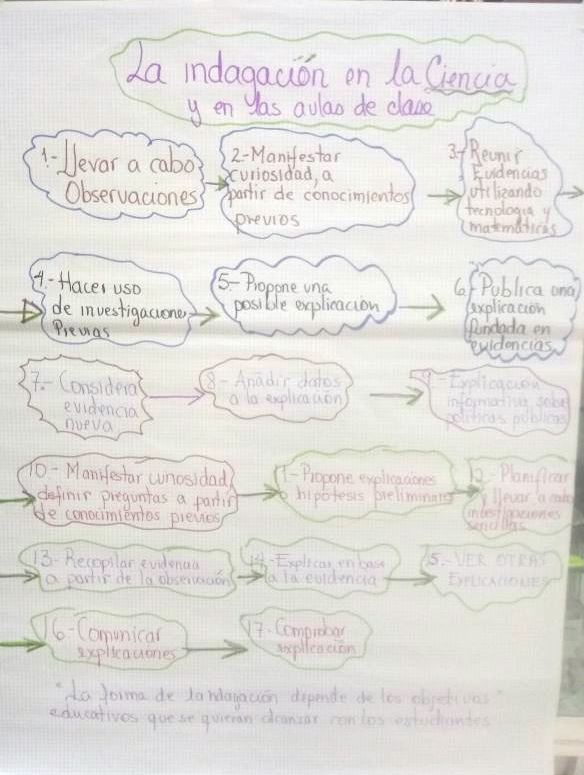 La indagación en la Ciencia
y en las aulas de clase
1.- Llevar a cabo
Observaciones
2-Manifestar
curiosidad, a
partir de conocimientos
previos
3-Reunir
Evidencias
utilizando
tecnologia y
matemáticas
4.-Hacer uso
de investigaciones
Previas
5.-Propone una
posible explicación
6-Publica una
explicación
fundada en
evidencias
7.-Considera
evidencia
nueva
8-Añadir datos
a la explicación
9-Explicación
informativa sobre
politicas publicas
10-Manifestar curiosidad
definir preguntas a partir
de conocimientos previos
11-Propone explicaciones
o hipótesis preliminares
12.-Planificar
y llevar a cabo
investigaciones
sencillas
13-Recopilar evidencia
a partir de la observación
14-Explicar en base
a la evidencia
15.-VER OTRAS
EXPLICACIONES
16-Comunicar
explicaciones
17-Comprobar
explicación
"La forma de la indagación depende de los objetivos"
educativos que se quieran alcanzar con los estudiantes